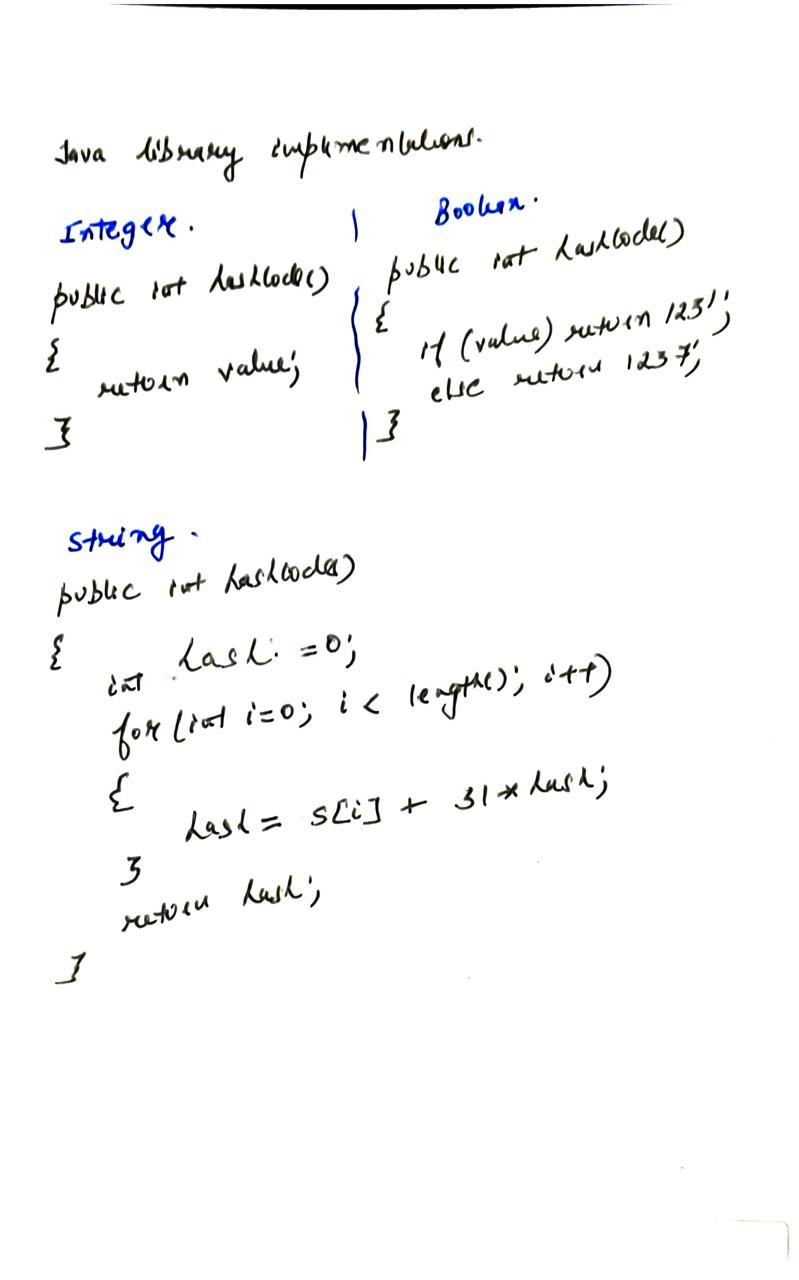 Java library implementations.
Integer.
public int hashCode()
{
return value;
}
Boolean.
public int hashCode()
{
if (value) return 1231;
else return 1237;
}
String.
public int hashCode()
{
int hash = 0;
for (int i=0; i < length(); i++)
{
hash = s[i] + 31 * hash;
}
return hash;
}